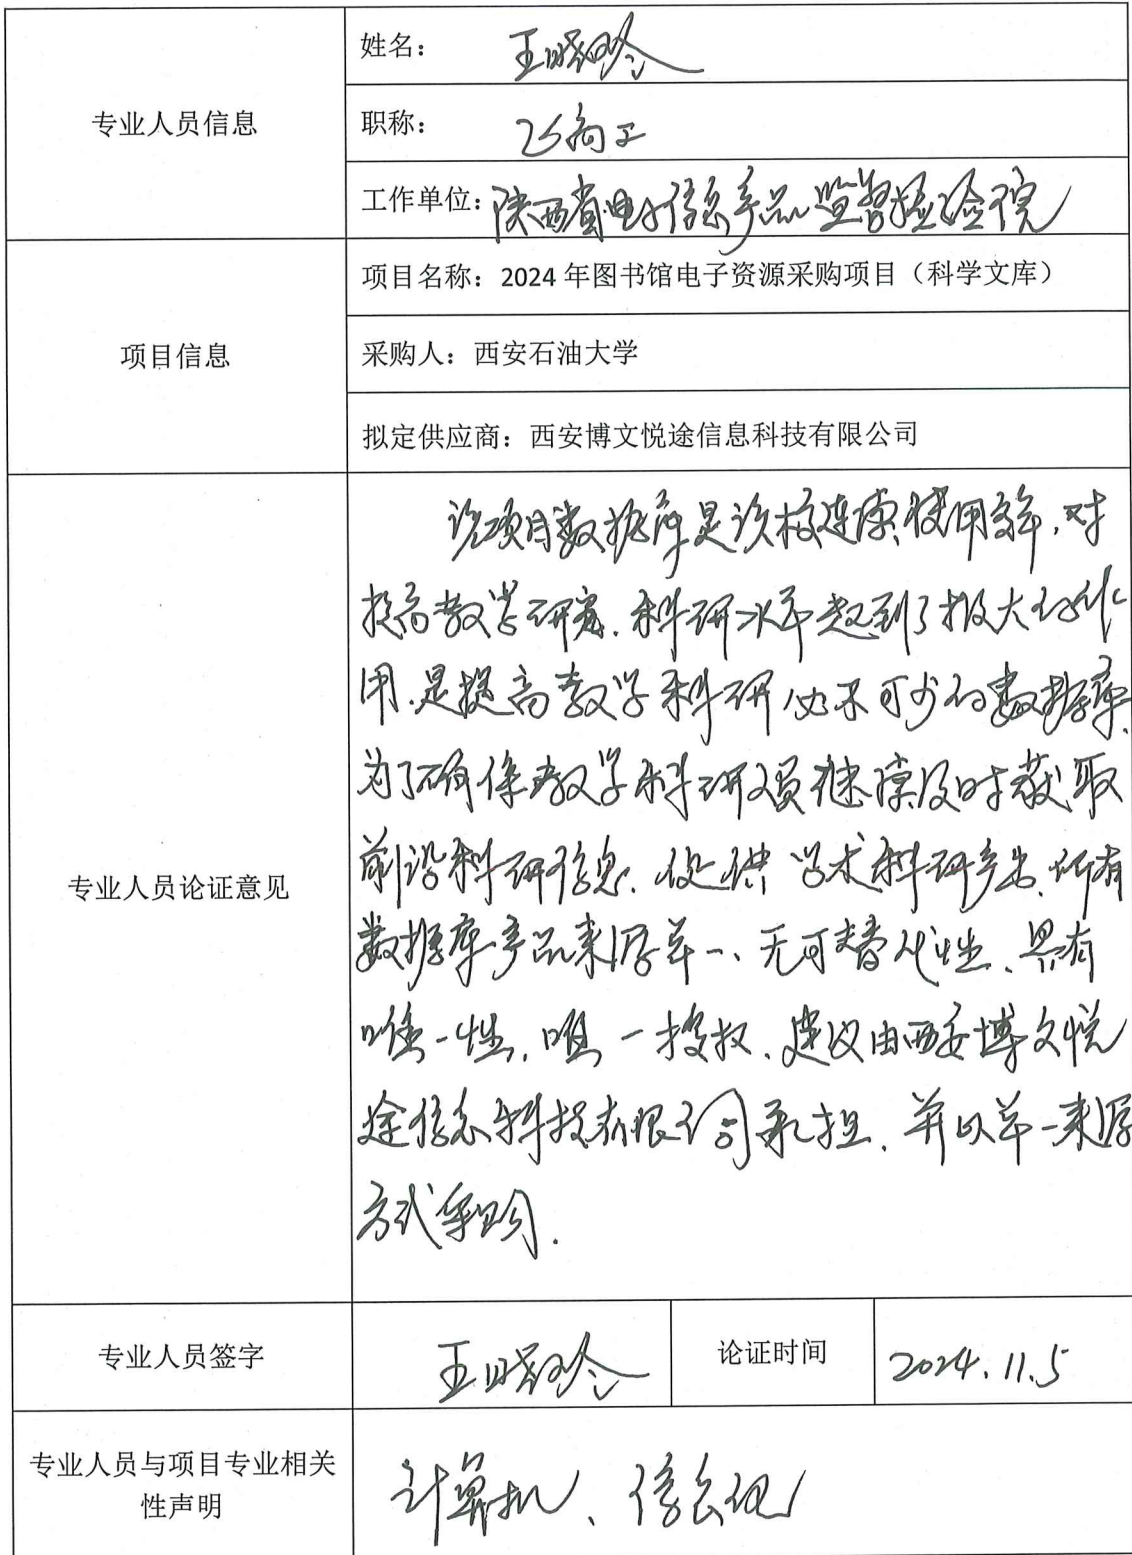 专业人员信息
姓名：王晓玲
职称：正高工
工作单位：陕西省电子信息产品监督检验院
项目信息
项目名称：2024年图书馆电子资源采购项目（科学文库）
采购人：西安石油大学
拟定供应商：西安博文悦途信息科技有限公司
专业人员论证意见
该项目数据库是该校连续使用多年，对
提高教学研究、科研水平起到了极大的作
用，是提高教学科研必不可少的数据库，
为了确保教学科研人员继续及时获取
前沿科研信息，促进学术科研产出，所有
数据库产品来源单一、无可替代性、具有
唯一性，唯一授权，建议由西安博文悦
途信息科技有限公司承担，并以单一来源
方式采购.
专业人员签字
王晓玲
论证时间
2024.11.5
专业人员与项目专业相关
性声明
计算机、信息化